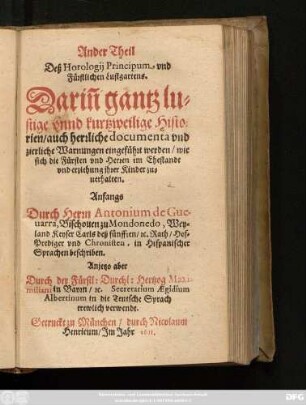 Ander Theil
Deß Horologij Principum, vnd
Fürstlichen Lustgartens.
Dariñ gantz lu-
stige vnnd kurtzweilige Histo-
rien/auch herrliche documenta vnd
zierliche Warnungen eingeführt werden / wie
sich die Fürsten vnd Herren im Ehestandt
vnd erziehung jhrer Kinder zu-
uerhalten.
Anfangs
Durch Herrn Antonium de Gue-
uarra, Bischouen zu Mondonedo, Wey-
land Keyser Carls deß fünfften/ ꝛc. Rath/ Hof-
Prediger vnd Chronisten, in Hispanischer
Sprachen beschriben.
Anjetzo aber
Durch der Fürstl: Durchl: Hertzog Maxi-
miliani in Bayrn/ ꝛc. Secretarium Ægidium
Albertinum in die Teutsche Sprach
trewlich verwendt.
Getruckt zu München / durch Nicolaum
Henricum/ Im Jahr 1611.